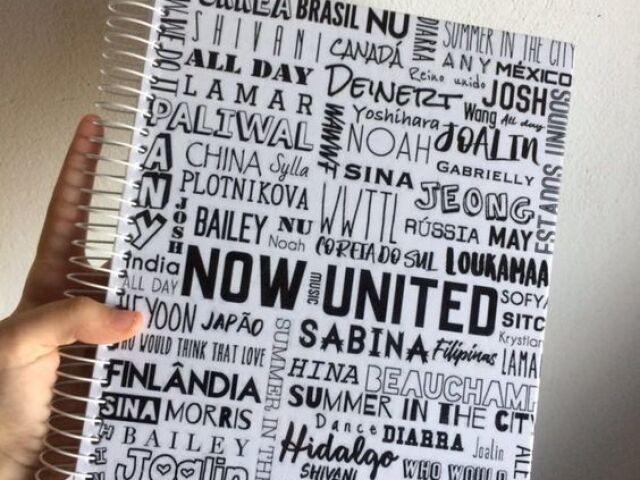 BRASIL NU
SHIVANI
CANADÁ
DIARRA
SUMMER IN THE CITY
ANY MÉXICO
ALL DAY
Reino unido
JOSH
LAMAR
DEINERT
Wang All day
PALIWAL
Yoshihara
JOALIN
WWWF
NOAH
CHINA Sylla
SINA
GABRIELLY
ESTADOS
ANY
PLOTNIKOVA
WWTTL
JEONG
JOSH
BAILEY NU
RÚSSIA MAY
Noah
COREIA DO SUL
LOUKAMAA
India
NOW UNITED
music
ALL DAY
SOFYA
HEYOON JAPÃO
SABINA
Filipinas
SITC
Krystian
WOULD THINK THAT LOVE
SUMMER IN THE
LAMA
FINLÂNDIA
HINA BEAUCHAMP
SUMMER IN THE CITY
SINA MORRIS
Dance
DIARRA
Joalin
BAILEY
Hidalgo
ALL
Joalin
SHIVANI
WHO WOULD